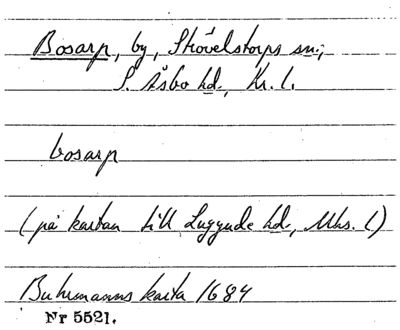 Bosarp, by, Stövelstorps sn;
S. Åsbo hd, Kr. l.
bosarp
(på kartan till Luggude hd, Mhs. l)
Buhrmanns karta 1684
Nr 5521.